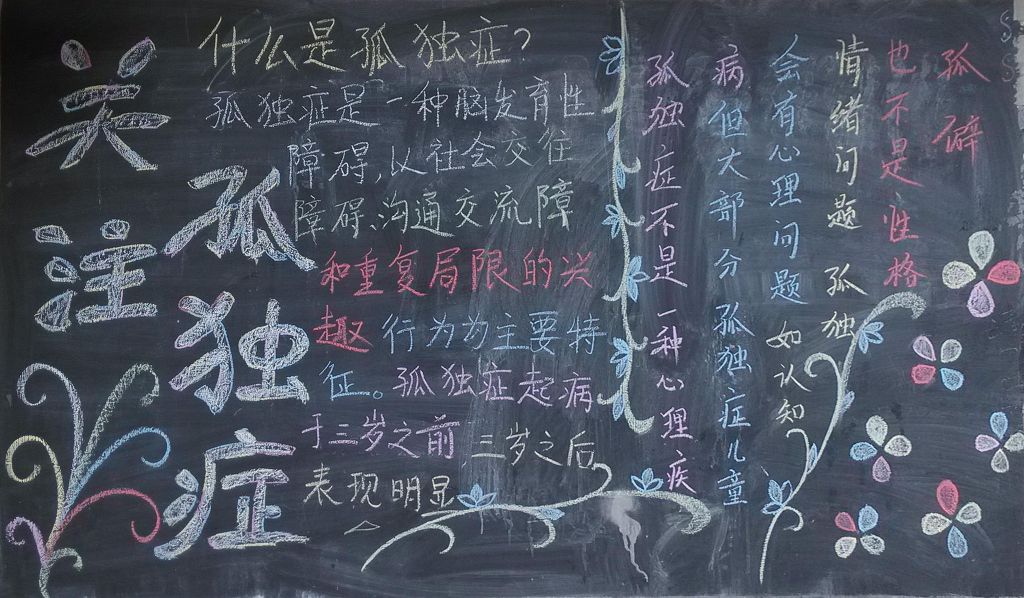 关注
孤独症
什么是孤独症?
孤独症是一种脑发育性
障碍,以社会交往
障碍、沟通交流障
和重复局限的兴
趣行为为主要特
征。孤独症起病
于三岁之前,三岁之后
表现明显
孤独症不是一种心理疾
病但大部分孤独症儿童
会有心理问题如认知
情绪问题 孤独
也不是性格
孤僻